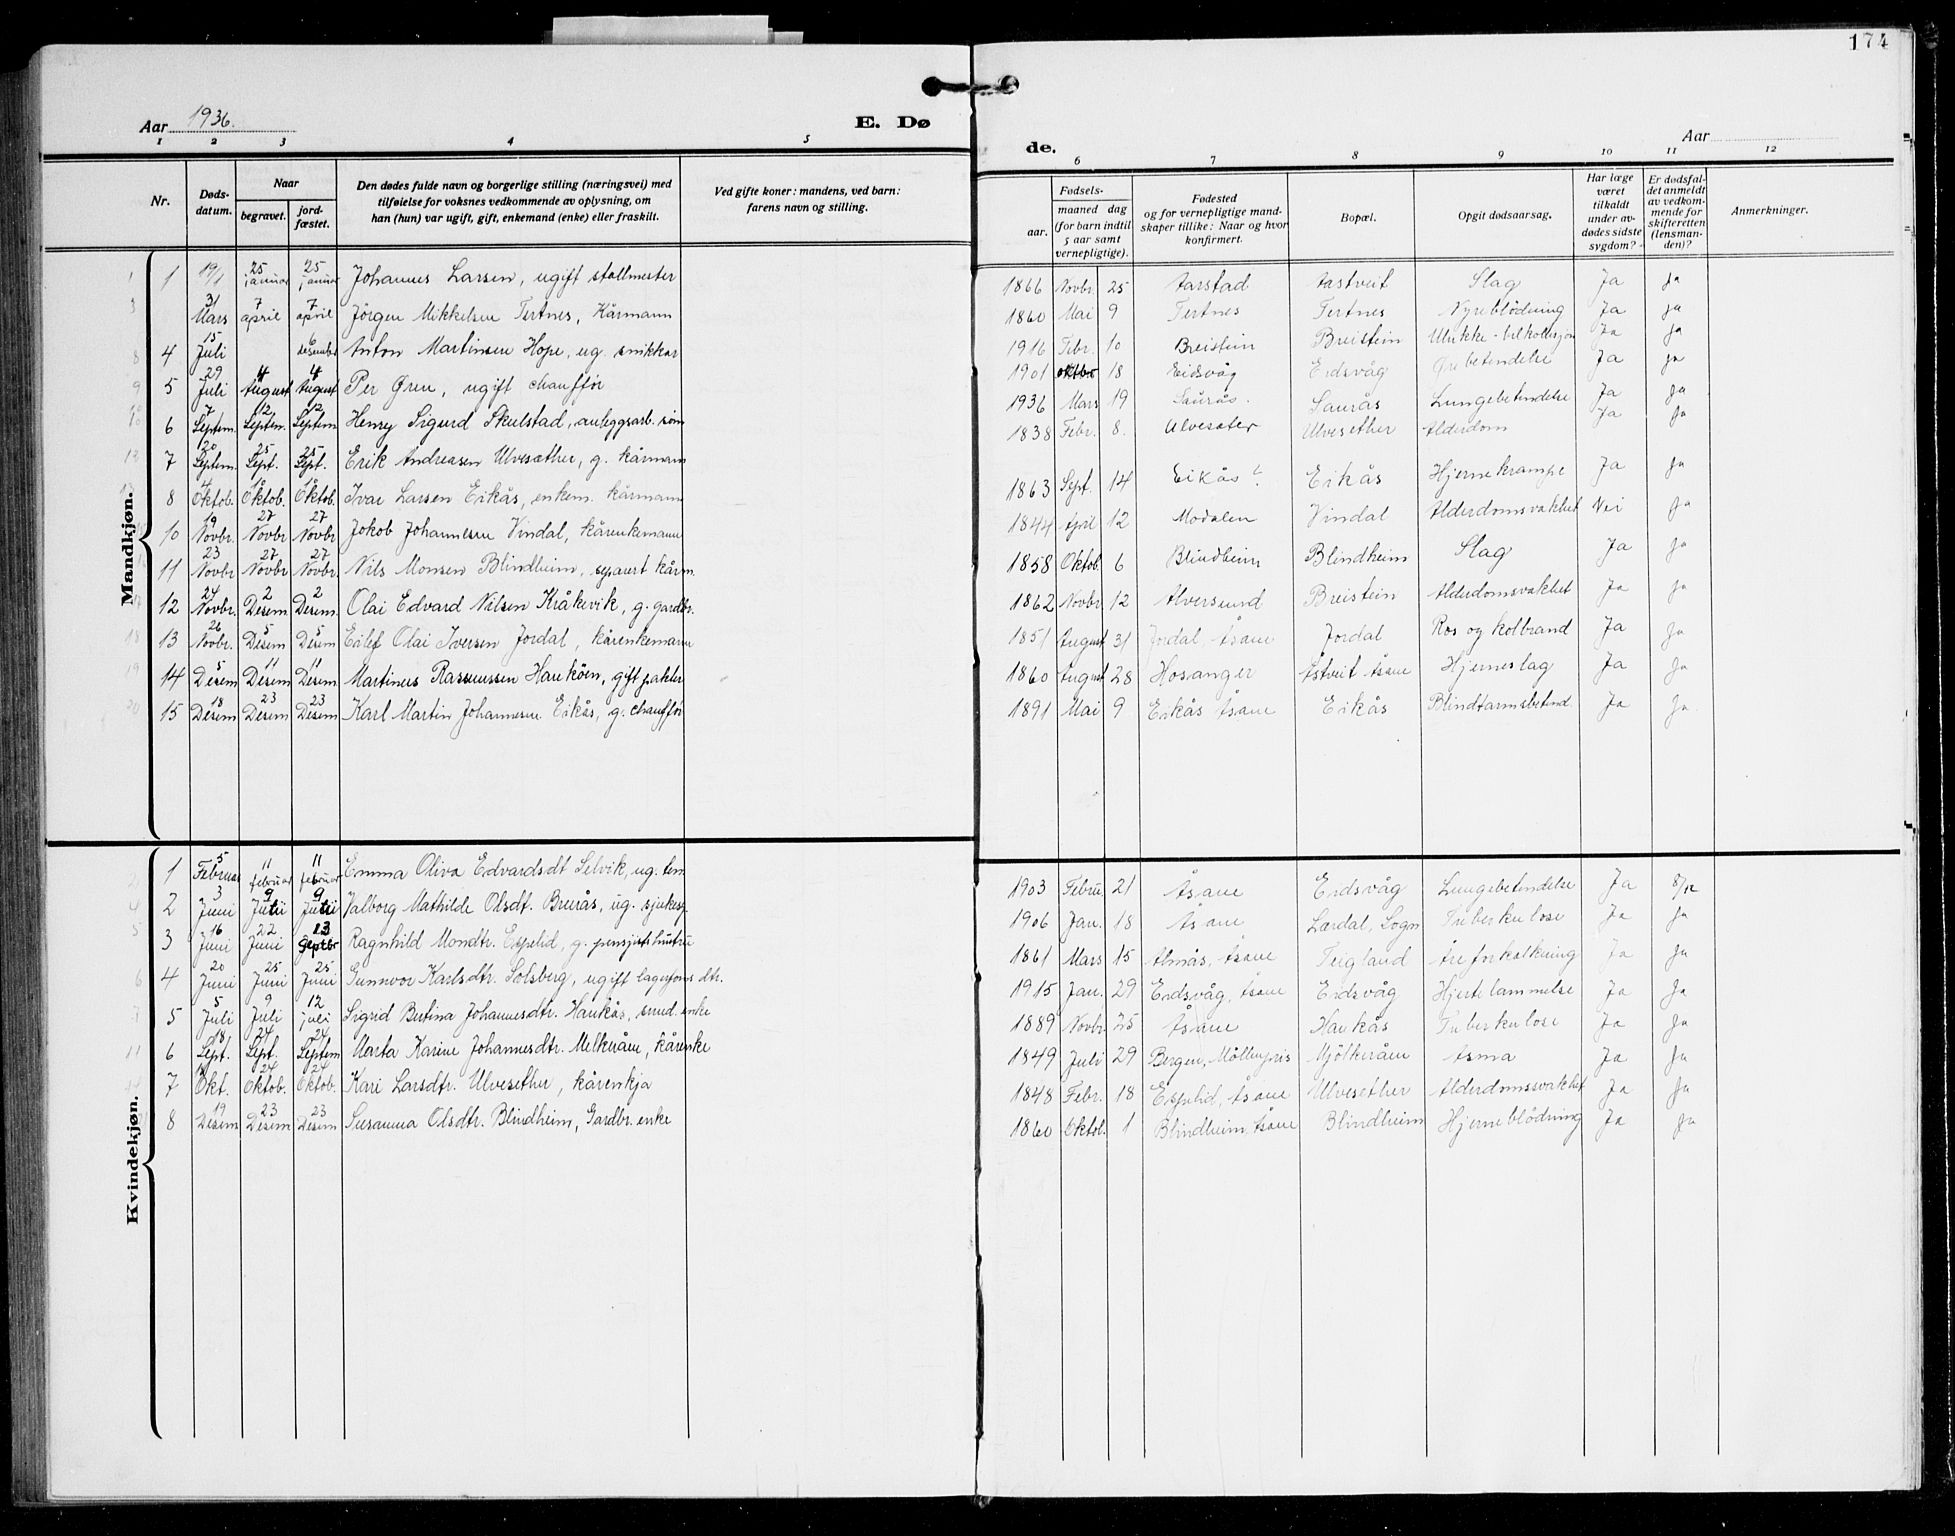 174
Aar 1936.
E. Dø
de.
Aar
1 2 3 4 5
6 7 8 9 10 11 12
Nr.
Døds-
datum.
Naar
begravet.
jord-
fæstet.
Den dødes fulde navn og borgerlige stilling (næringsvei) med
tilføielse for voksnes vedkommende av oplysning, om
han (hun) var ugift, gift, enkemand (enke) eller fraskilt.
Ved gifte koner: mandens, ved barn:
farens navn og stilling.
Fødsels-
aar.
maaned dag
(for barn indtil
5 aar samt
vernepligtige).
Fødested
og for vernepligtige mand-
skaper tillike: Naar og hvor
konfirmert.
Bopæl.
Opgit dødsaarsag.
Har læge
været
tilkaldt
under av-
dødes sidste
sygdom?
Er dødsfal-
det anmeldt
av vedkom-
mende for
skifteretten
(lensman-
den)?
Anmerkninger.
Mandkjøn.
1 19/1 25 januar 25 januar Johannes Larsen, ugift stallmester 1866 Novbr. 25 Aarstad Aastveit Slag Ja ja
31 Mars 7 april 7 april Jörgen Mikkelsen Tertnes, Kårmann 1860 Mai 9 Tertnes Tertnes Nyreblödning Ja ja
4 15 Juli 6 desember Anton Martinsen Hope, ug. snikkar 1916 Febr. 10 Breistein Breistein Ulukke - bilkollisjon Ja ja
5 29 Juli 4 August 4 August Per Øren, ugift chauffør 1901 oktbr 18 Eidsvåg Eidsvåg Ørebetendelse Ja ja
6 7 Septem. 12 Septem. 12 Septem Henry Sigurd Skulstad, anleggsarb. søn 1936 Mars 19 Saurås. Saurås Lungebetendelse Ja ja
7 20 Septem. 25 Sept. 25 Sept. Erik Andreasen Ulvesæther, g. kårmann 1838 Febr. 8. Ulvesæter Ulvesether Alderdom Ja ja
8 Oktob. Oktob. Oktob. Ivar Larsen Eikås, enkem. kårmann 1863 Sept. 14 Eikås Eikås Hjernekrampe Ja ja
10 19 Novbr. 27 Novbr 27 Novbr Jokob Johannesen Vindal, kårenkemann 1844 April 12 Modalen Vindal Alderdomsvakhet Nei ja
11 23 Novbr 27 Novbr 27 Novbr. Nils Monsen Blindheim, separert kårm. 1858 Oktob. 6 Blindheim Blindheim Slag Ja ja
12 24 Novbr. 2 Desem 2 Desem. Olai Edvard Nilsen Kråkevik, g. gardbr. 1862 Novbr 12 Alversund Breistein Alderdomsvakhet Ja ja
13 26 Novbr. 5 Desem 5 Desem Eilef Olai Iversen Jordal, kårenkemann 1851 August 31 Jordal, Åsane Jordal Ros og kolbrand Ja ja
14 5 Desem 11 Desem 11 Desem. Martines Rasmussen Hauköen, gift pakter 1860 August 28 Hosanger Åstveit Åsane Hjerneslag Ja ja
15 18 Desem 23 Desem 23 Desem Karl Martin Johannesen Eikås, g. chauffør 1891 Mai 9 Eikås Åsane Eikås Blindtarmsbetend. Ja ja
Kvindekjøn.
1 5 Februar 11 februar 11 februar Emma Oliva Edvardsdt Selvik, ug. 1903 Febru 21 Åsane Eidsvåg Lungebetendelse Ja 8/12
2 3 Juni 9 Juli 9 Juli Valborg Mathilde Olsdt. Brurås, ug. sjukesp. 1906 Jan. 18 Åsane Lærdal, Sogn Tuberkulose Ja ja
3 16 Juni 22 Juni 13 Septbr Ragnhild Mondtr. Espelid, g. pensjonisthustru 1861 Mars 15 Almås, Åsane Teigland Åreforkalkning Ja ja
4 20 Juni 25 Juni 25 Juni Gunnvor Karlsdtr. Solsberg, ugift lagerform. dtr. 1915 Jan. 29 Eidsvåg, Åsane Eidsvåg Hjertelammelse Ja ja
5 5 Juli 9 Juli 12 juli Sigrid Bertina Johannesdtr. Haukås, smed. enke 1889 Novbr 25 Åsane Haukås Tuberkulose Ja ja
6 18 Sept. 24 Sept. 24 Septem Marta Karine Johannesdtr. Melkeråen, kårenke 1849 Juli 29 Bergen, Möllenpris Mjölkeråen Asma Ja ja
7 Okt. 24 Oktob. 24 Oktob. Kari Larsdtr. Ulvesether, kårenkja 1848 Febr. 18 Espelid, Åsane Ulvesether Alderdomssvakhet Ja ja
8 19 Desem 23 Desem 23 Desem Susanna Olsdtr. Blindheim, Gardbr. enke 1860 Oktob. 1 Blindheim Åsane Blindheim Hjerneblödning Ja ja